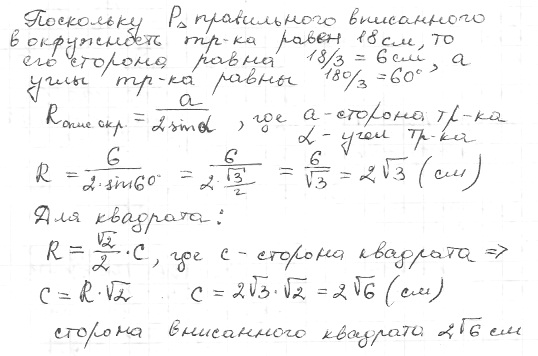 Поскольку P△ правильного вписанного
в окружность тр-ка равен 18 см, то
его сторона равна 18/3 = 6 см, а
углы тр-ка равны 180/3 = 60°
Rопис окр. = a/(2 sin α), где a - сторона тр-ка
α - угол тр-ка
R = 6/(2·sin 60°) = 6/(2·√3/2) = 6/√3 = 2√3 (см)
Для квадрата:
R = √2/2 · c, где c - сторона квадрата =>
c = R·√2 c = 2√3·√2 = 2√6 (см)
сторона вписанного квадрата 2√6 см